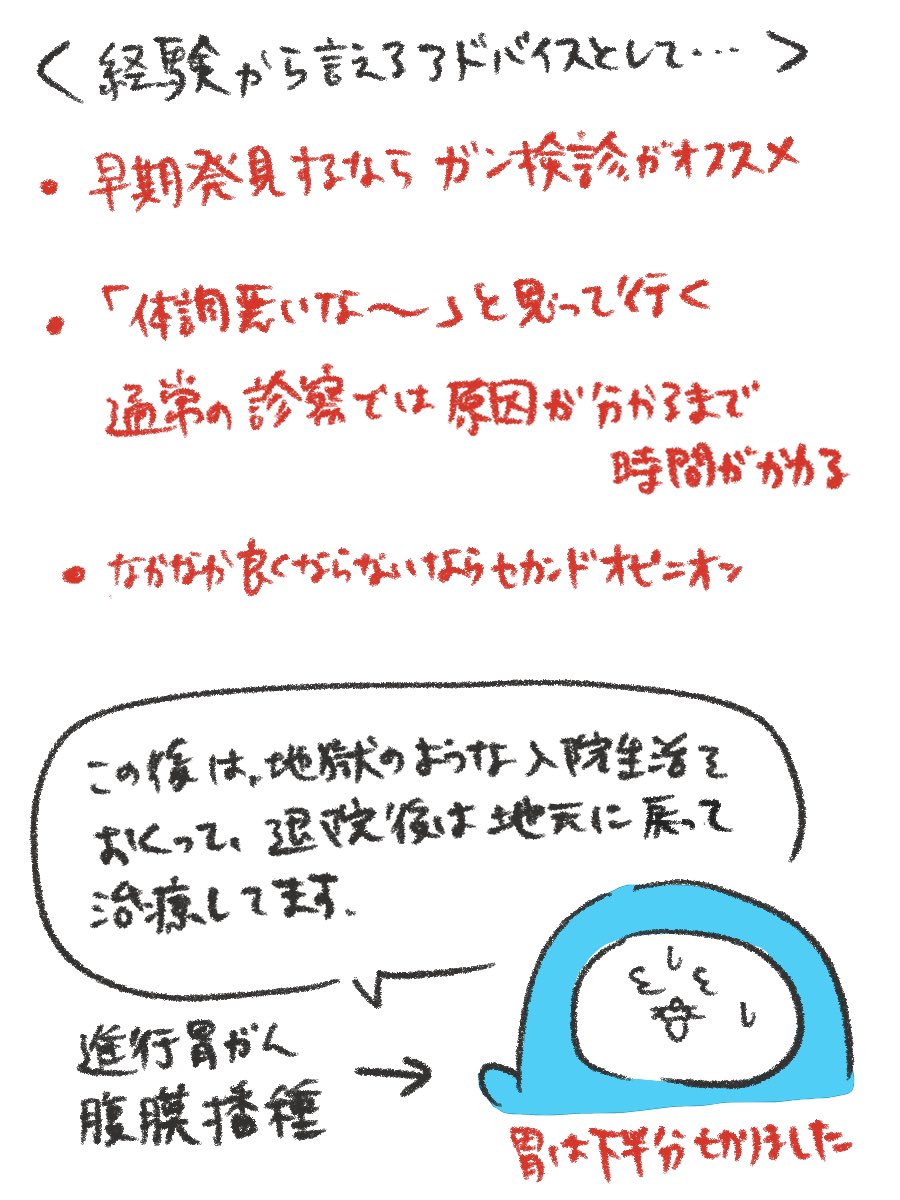 <経験から言えるアドバイスとして…>
・早期発見するなら ガン検診がオススメ
・「体調悪いな〜」と思って行く
通常の診察では原因が分かるまで
時間がかかる
・なかなか良くならないならセカンドオピニオン
この後は、地獄のような入院生活を
おくって、退院後は地元に戻って
治療してます。
進行胃がん →
腹膜播種
胃は下半分せかりました